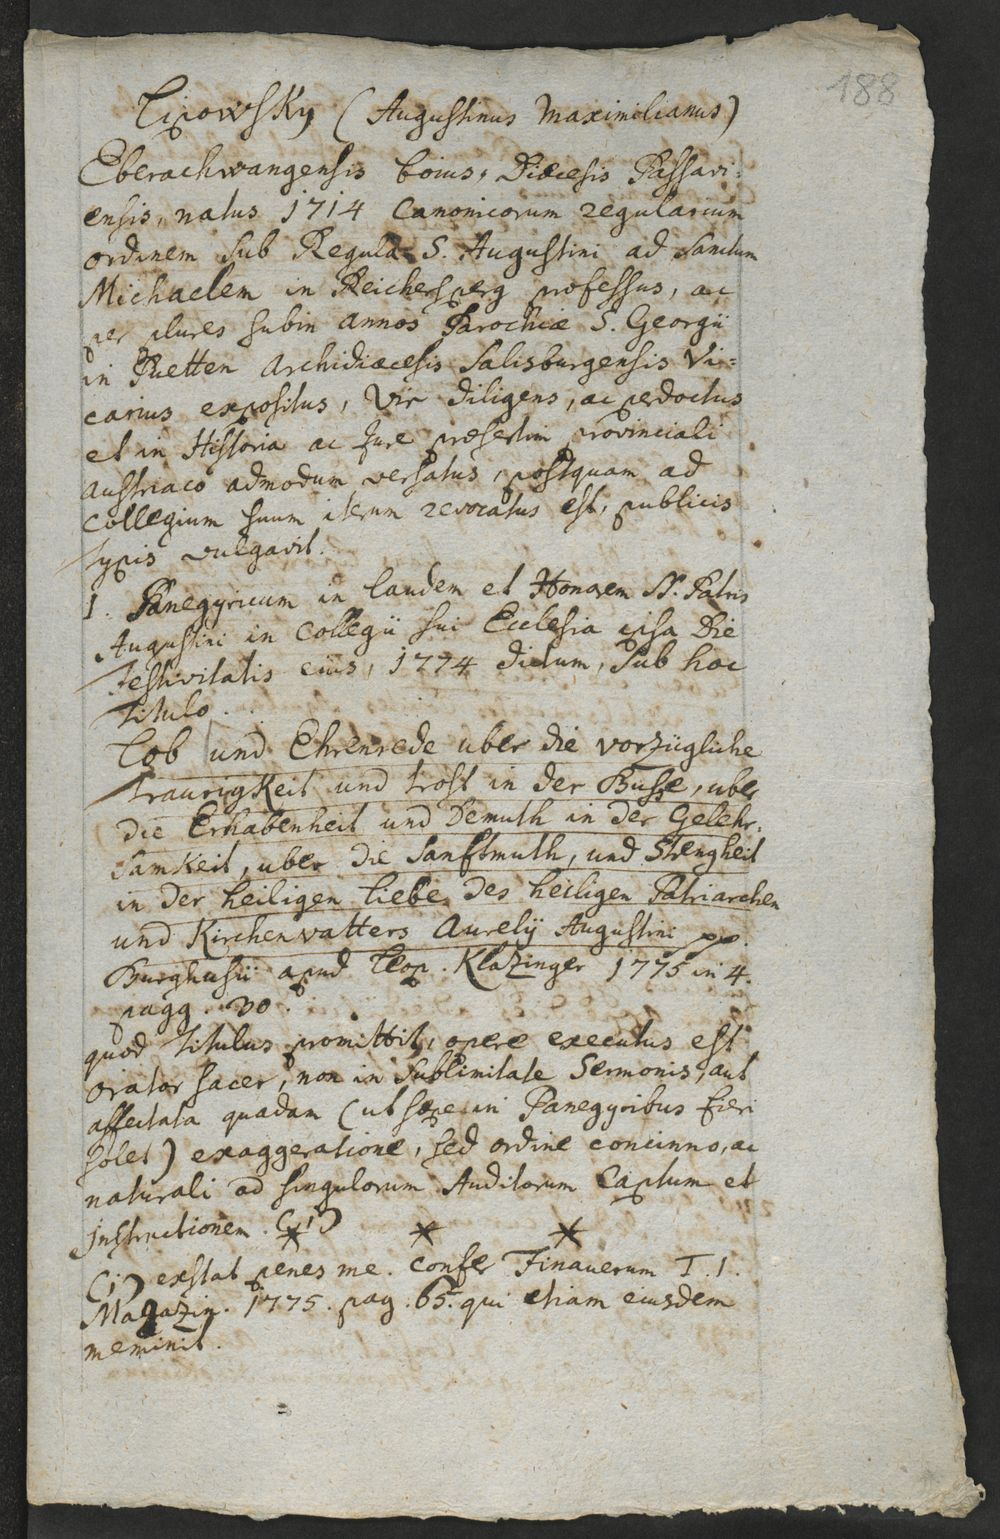 188
Lipowsky (Augustinus Maximilianus)
Eberachwangensis boius, Diœcesis Passavi=
ensis, natus 1714 Canonicorum regularium
ordinem sub Regula S. Augustini ad Sanctum
Michaelem in Reichersperg professus, ac
per plures subin annos Parochiæ S. Georgii
in Puetten Archidiœcesis Salisburgensis Vi=
carius expositus, Vir diligens, ac perdoctus
et in Historia ac Jure præsertim provinciali
austriaco admodum versatus, postquam ad
Collegium suum iterum revocatus est, publicis
typis vulgavit.
1. Panegyricum in laudem et Honorem SS. Patris
Augustini in Collegii sui Ecclesia ipsa Die
festivitatis eius, 1774 dictum, sub hoc
titulo.
Lob und Ehrenrede uber die vorzügliche
traurigkeit und trost in der Busse, uber
die Erhabenheit und Demuth in der Gelehr,
samkeit, uber die Sanftmuth, und Strengheit
in der heiligen liebe des heiligen Patriarchen
und Kirchenvatters Aurelij Augustini pp.
Burghusii apud Leop. Klazinger 1775 in 4.
pagg. 30.
quod titulus promittit, opere executus est
orator sacer, non in sublimitate Sermonis, aut
affectata quadam (ut sæpe in Panegyribus fieri
solet) exaggeratione, sed ordine concinno, ac
naturali ad singulorum Auditorum Captum et
Instructionem. (1)
* * *
(1) exstat penes me. confer Finauerum T. 1.
Magazin. 1775. pag. 65. qui etiam eiusdem
meminit.